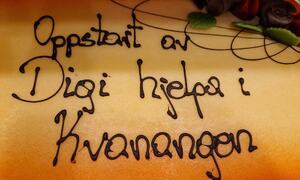 Oppstart av
Digi hjelpa i
Kvanangen